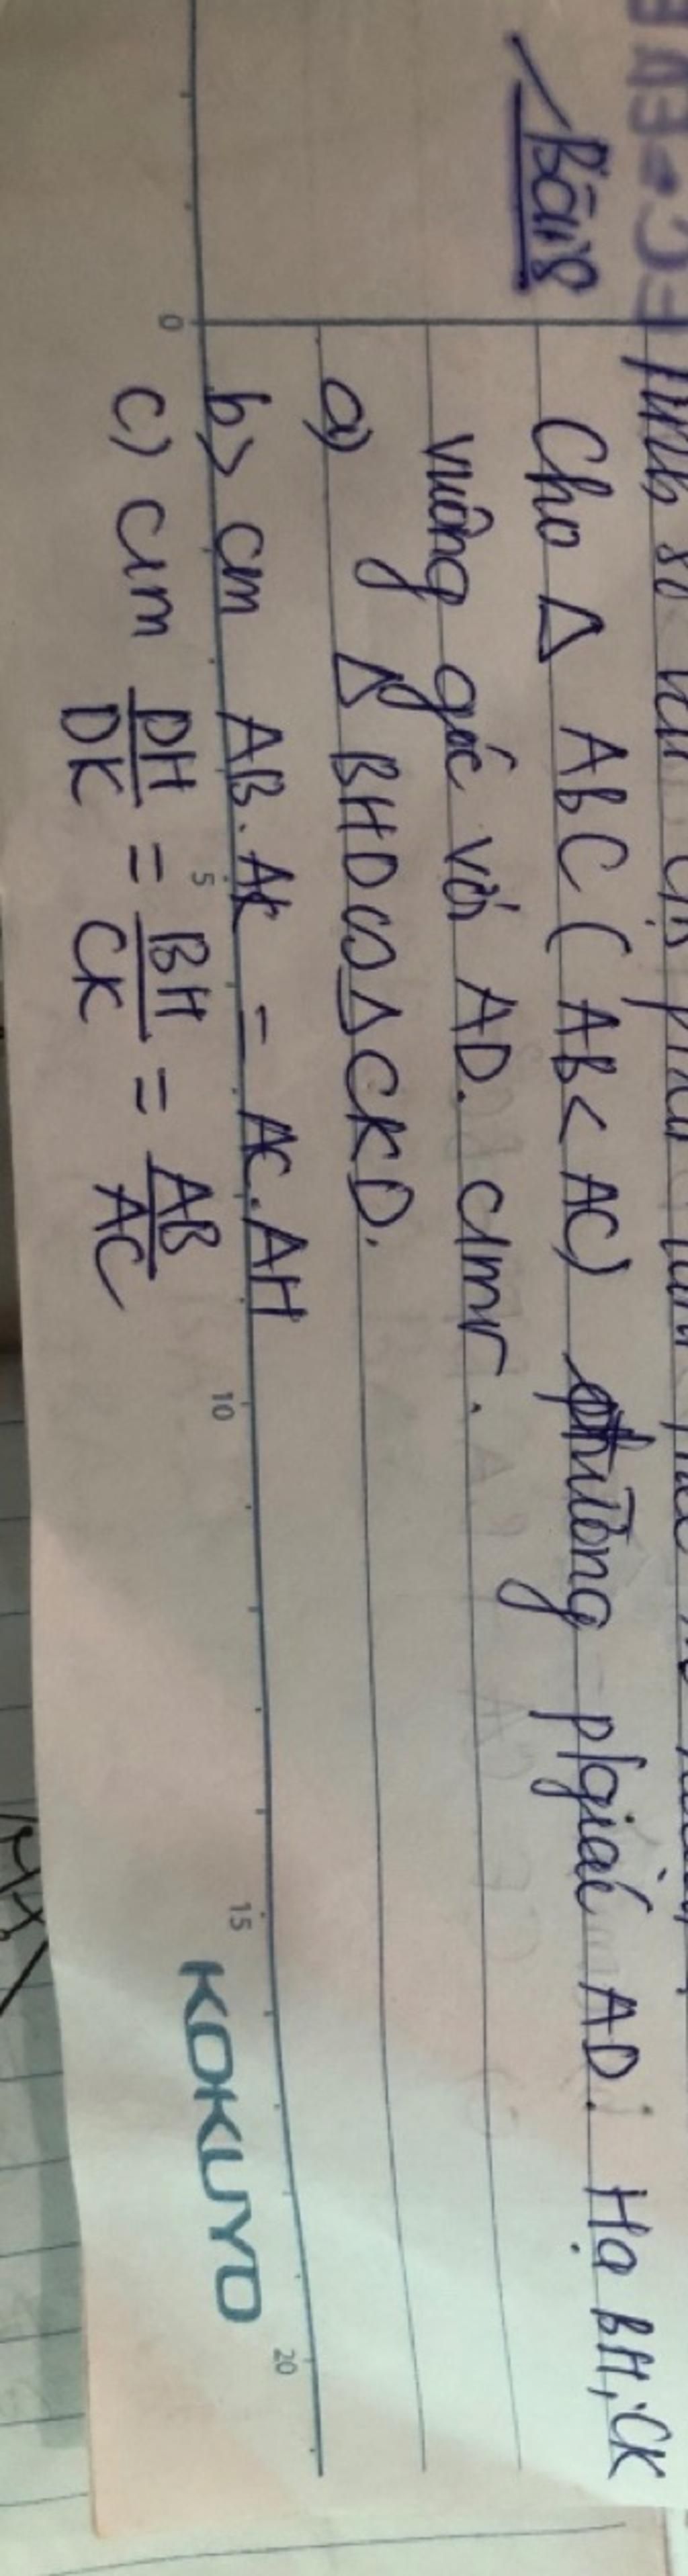 Bài 8
Cho Δ ABC ( AB < AC) đường p/giác AD. Hạ BH, CK
vuông góc với AD. cmr.
a) Δ BHD ∽ Δ CKD.
b) cm AB. AK = AC. AH
c) cm DH/DK = BH/CK = AB/AC
0 5 10 15 20
KOKUYO